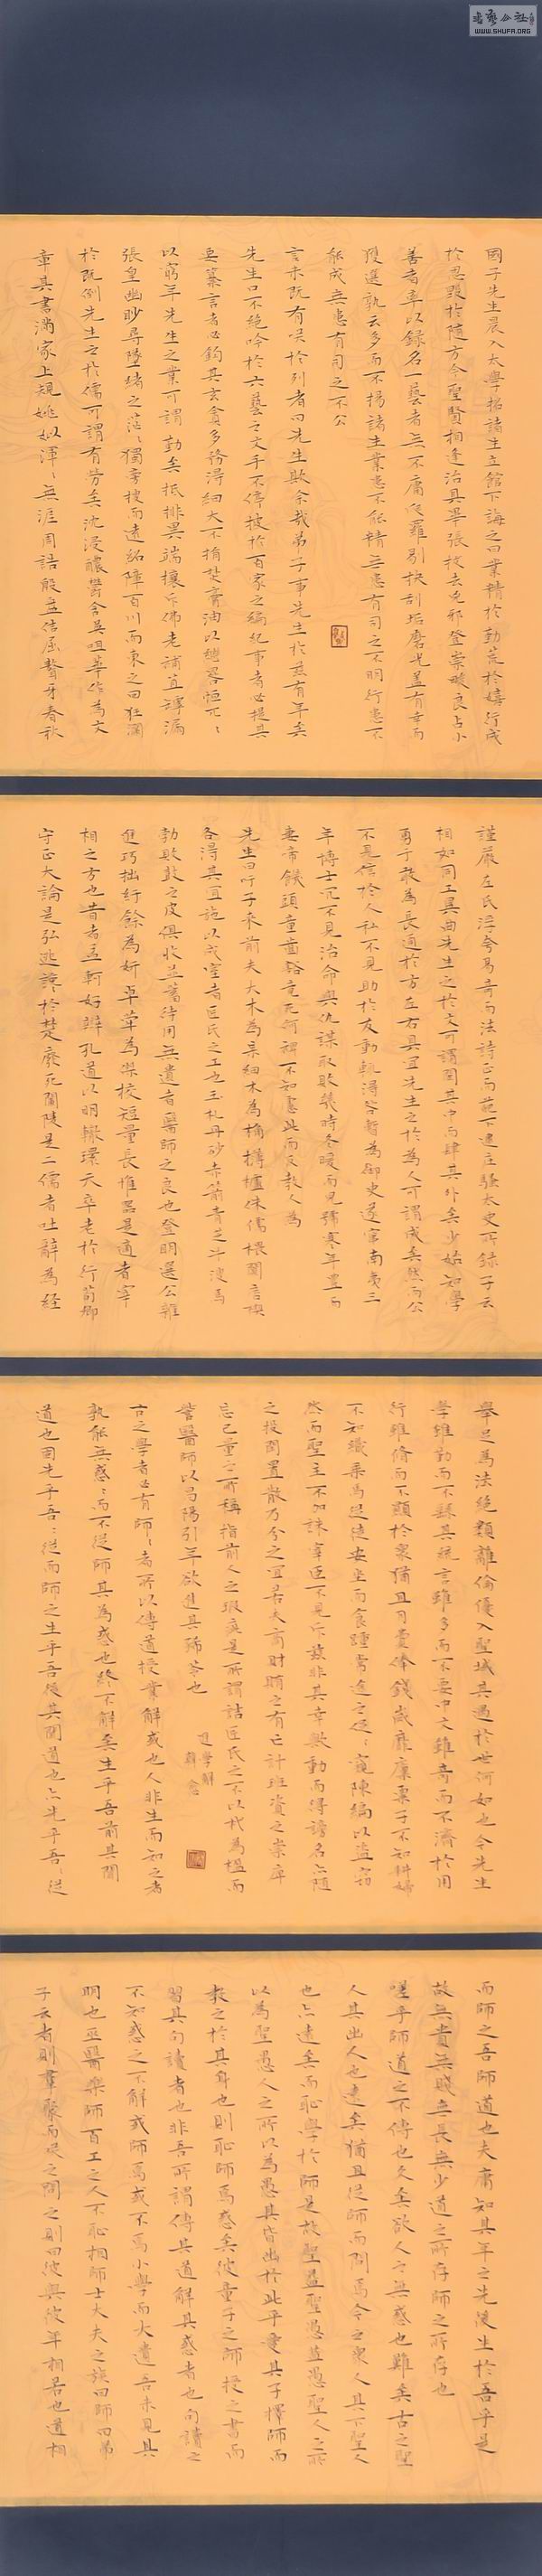 WWW.SHUFA.ORG
國子先生晨入太學招諸生立館下誨之曰業精於勤荒於嬉行成
於思毀於隨方今聖賢相逢治具畢張拔去兇邪登崇畯良占小
善者率以錄名一藝者無不庸爬羅剔抉刮垢磨光蓋有幸而
獲選孰云多而不揚諸生業患不能精無患有司之不明行患不
能成無患有司之不公
言未既有笑於列者曰先生欺余哉弟子事先生於茲有年矣
先生口不絕吟於六藝之文手不停披於百家之編紀事者必提其
要纂言者必鉤其玄貪多務得細大不捐焚膏油以繼晷恒兀〻
以窮年先生之業可謂勤矣抵排異端攘斥佛老補苴罅漏
張皇幽眇尋墜緒之茫〻獨旁搜而遠紹障百川而東之回狂瀾
於既倒先生之於儒可謂有勞矣沈浸醲鬱含英咀華作為文
章其書滿家上規姚姒渾〻無涯周誥殷盤佶屈聱牙春秋
謹嚴左氏浮誇易奇而法詩正而葩下逮莊騷太史所錄子云
相如同工異曲先生之於文可謂閎其中而肆其外矣少始知學
勇于敢為長通於方左右具宜先生之於為人可謂成矣然而公
不見信於人私不見助於友動輒得咎暫為御史遂竄南夷三
年博士冗不見治命與仇謀取敗幾時冬暖而兒號寒年豐而
妻啼饑頭童齒豁竟死何裨不知慮此而反教人為
先生曰吁子來前夫大木為杗細木為桷欂櫨侏儒椳闑扂楔
各得其宜施以成室者匠氏之工也玉札丹砂赤箭青芝牛溲馬
勃敗鼓之皮俱收並蓄待用無遺者醫師之良也登明選公雜
進巧拙紆餘為妍卓犖為傑校短量長惟器是適者宰
相之方也昔者孟軻好辯孔道以明轍環天卒老於行荀卿
守正大論是弘逃讒於楚廢死蘭陵是二儒者吐辭為經
舉足為法絕類離倫優入聖域其遇於世何如也今先生
學雖勤而不繇其統言雖多而不要中文雖奇而不濟於用
行雖修而不顯於眾猶且月費俸錢歲靡廩粟子不知耕婦
不知織乘馬從徒安坐而食踵常途之促〻窺陳編以盜竊
然而聖主不加誅宰臣不見斥茲非其幸歟動而得謗名亦隨
之投閒置散乃分之宜若夫商財賄之有亡計班資之崇庳
忘己量之所稱指前人之瑕疵是所謂詰匠氏之不以杙為楹而
訾醫師以昌陽引年欲進其豨苓也
進學解
韓愈
古之學者必有師〻者所以傳道授業解惑也人非生而知之者
孰能無惑〻而不從師其為惑也終不解矣生乎吾前其聞
道也固先乎吾〻從而師之生乎吾後其聞道也亦先乎吾〻從
而師之吾師道也夫庸知其年之先後生於吾乎是
故無貴無賤無長無少道之所存師之所存也
嗟乎師道之不傳也久矣欲人之無惑也難矣古之聖
人其出人也遠矣猶且從師而問焉今之衆人其下聖人
也亦遠矣而恥學於師是故聖益聖愚益愚聖人之所
以為聖愚人之所以為愚其皆出於此乎愛其子擇師而
教之於其身也則恥師焉惑矣彼童子之師授之書而
習其句讀者也非吾所謂傳其道解其惑者也句讀之
不知惑之不解或師焉或不焉小學而大遺吾未見其
明也巫醫樂師百工之人不恥相師士大夫之族曰師曰弟
子云者則羣聚而笑之問之則曰彼與彼年相若也道相